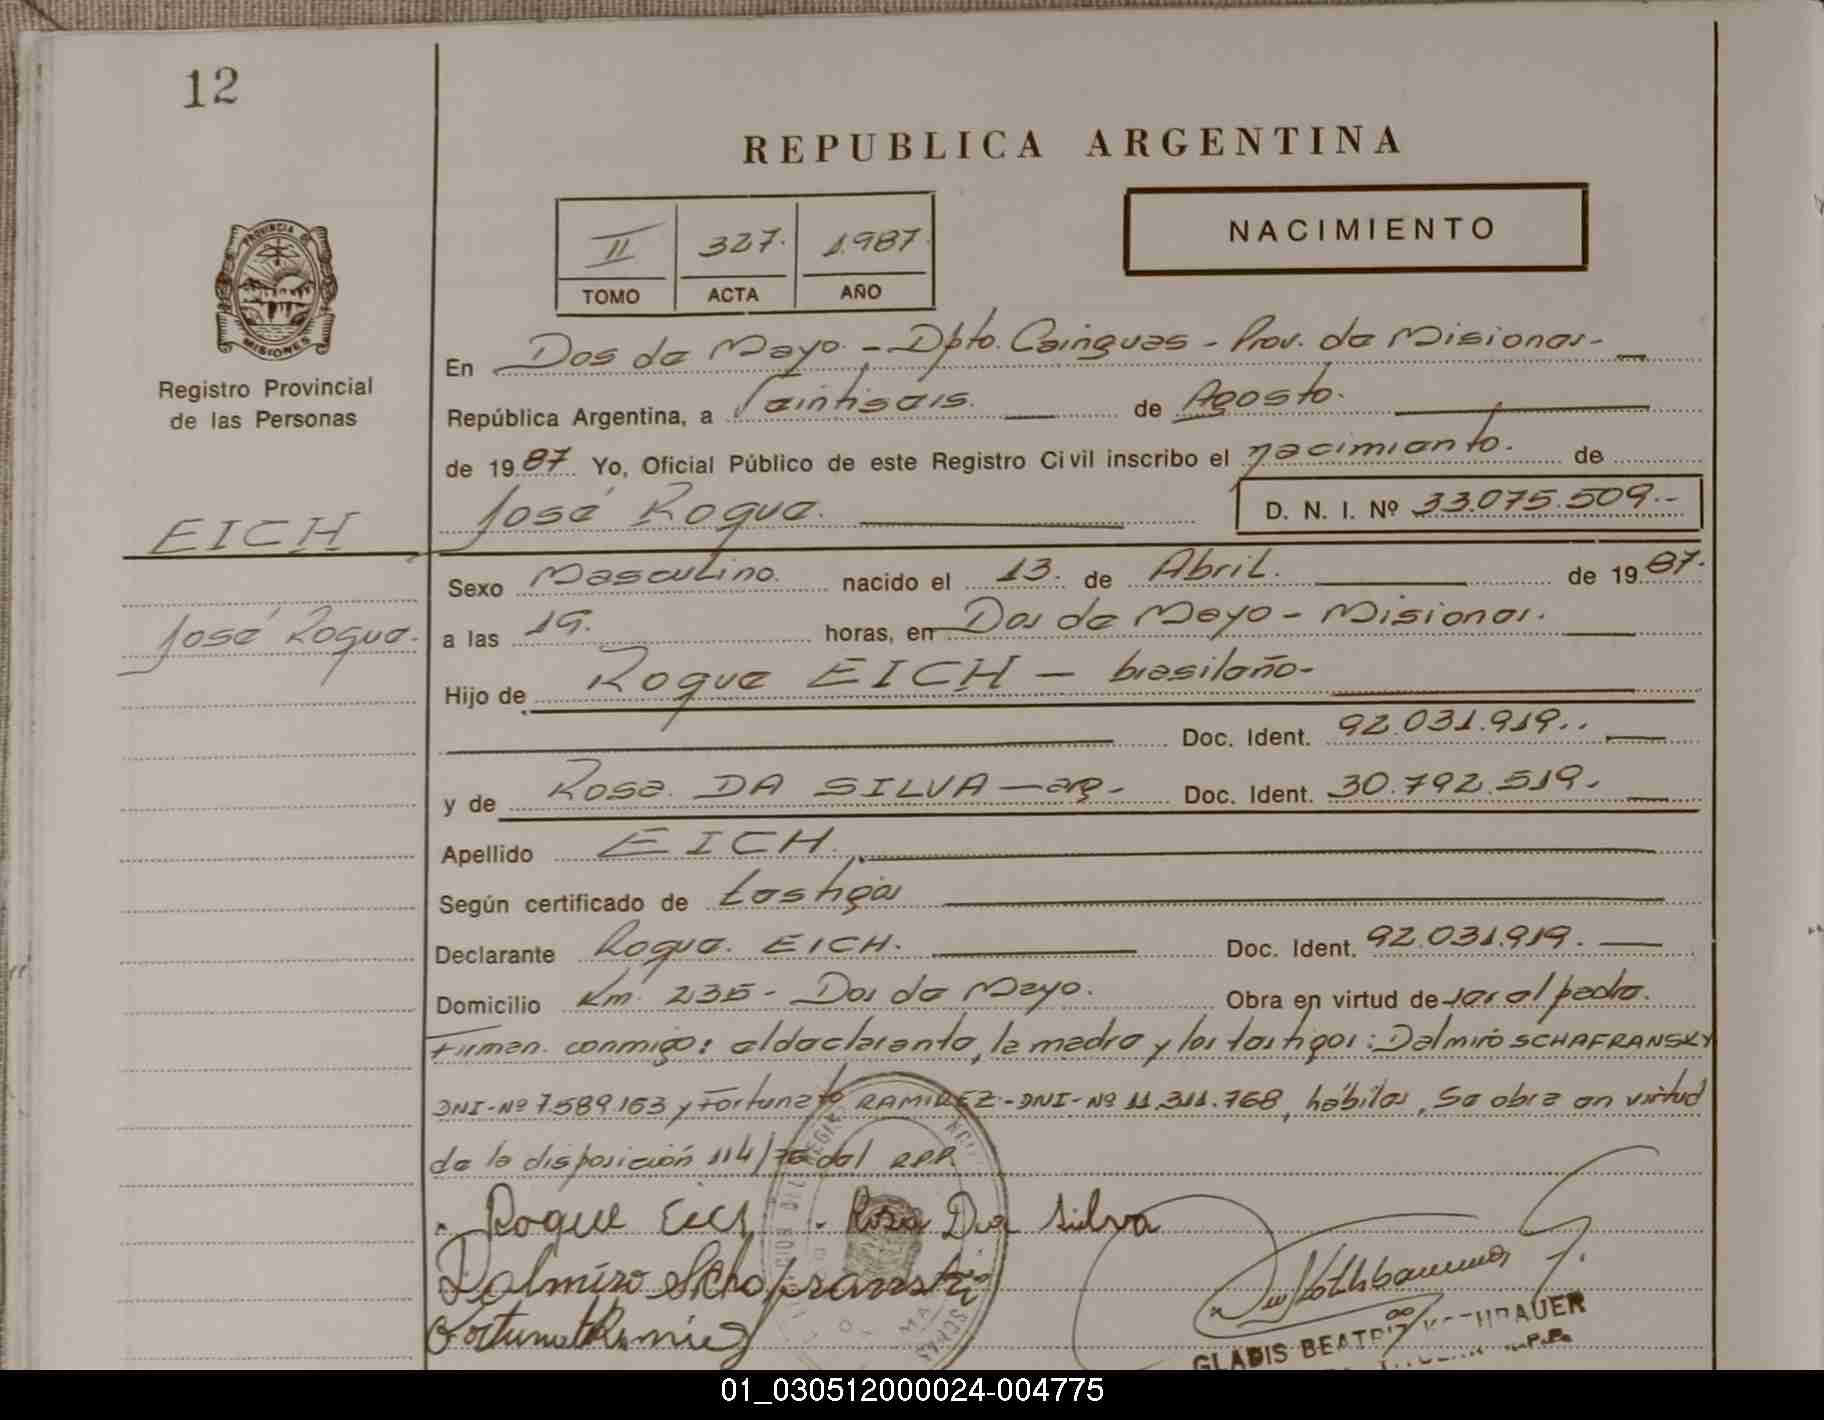 12
REPUBLICA ARGENTINA
NACIMIENTO
II 327. 1.987.
TOMO ACTA AÑO
PROVINCIA DE
MISIONES
Registro Provincial
de las Personas
En Dos de Mayo - Dpto. Cainguas - Prov. de Misiones -
República Argentina, a Veintiseis. de Agosto.
de 1987. Yo, Oficial Público de este Registro Civil inscribo el nacimiento. de
José Roque. D. N. I. Nº 33.075.509.-
EICH
Sexo Masculino. nacido el 13. de Abril. de 1987.
José Roque.
a las 19. horas, en Dos de Mayo - Misiones.
Hijo de Roque EICH - brasileño-
Doc. Ident. 92.031.919..
y de Rosa DA SILVA - arg- Doc. Ident. 30.792.519.
Apellido EICH.
Según certificado de testigos
Declarante Roque. EICH. Doc. Ident. 92.031.919.
Domicilio Km. 235 - Dos de Mayo. Obra en virtud de ser el padre.
Firman conmigo: el declarante, la madre y los testigos: Delmiro SCHAFRANSKY
DNI-Nº 7.589.163 y Fortunato RAMIREZ - DNI-Nº 11.311.768, hábiles, Se obra en virtud
de la disposición 114/76 del RPP
Roque Eich Rosa Da Silva
Delmiro Schafranski
GLADIS BEATRIZ
01_030512000024-004775